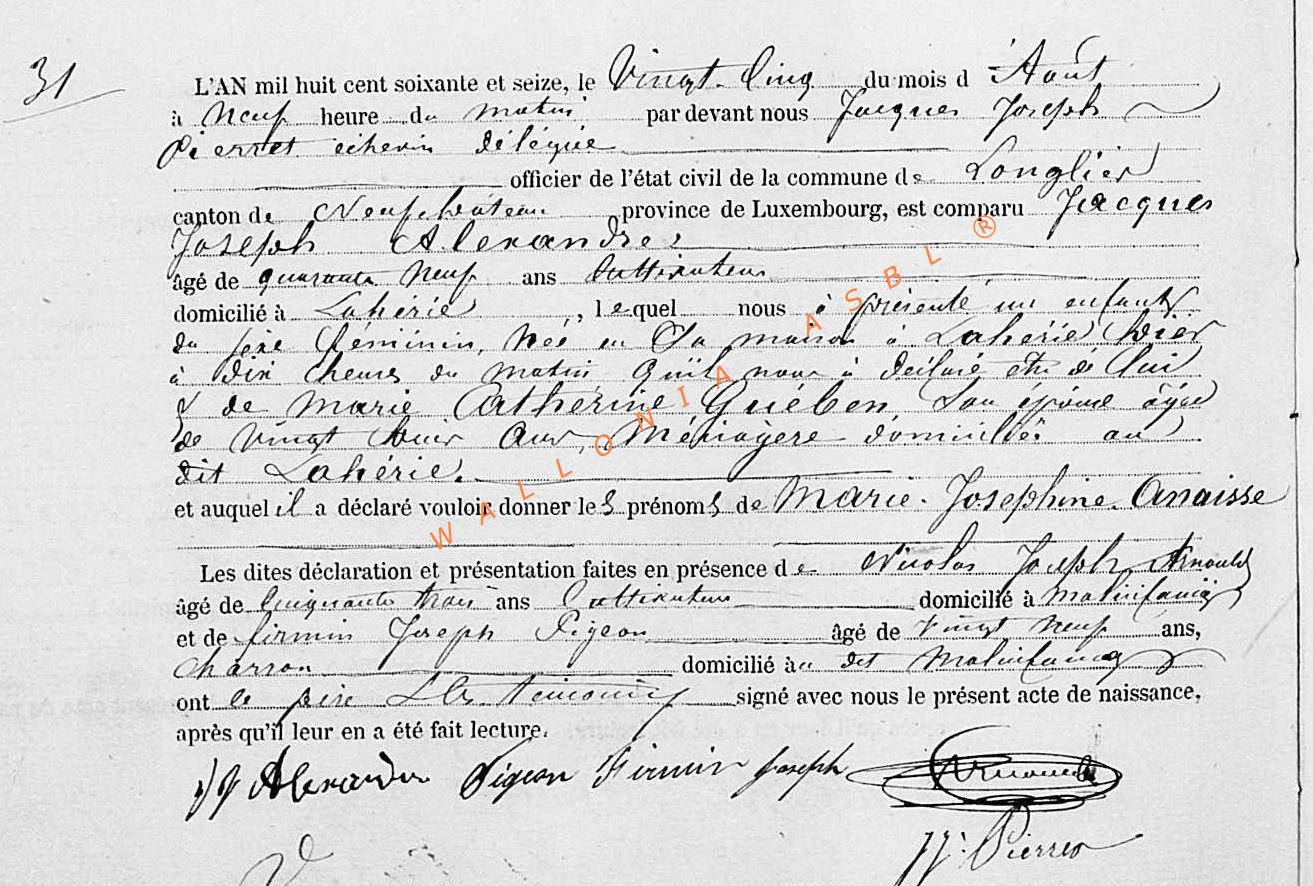 31
L'AN mil huit cent soixante et seize, le Vingt-Cinq du mois d'Août
à Neuf heure du matin par devant nous Jacques Joseph
Pierret échevin délégué
officier de l'état civil de la commune de Longlier
canton de Neufchâteau province de Luxembourg, est comparu Jacques
Joseph Alexandre,
âgé de quarante neuf ans Cultivateur
domicilié à Lahérie, lequel nous à présenté un enfant
du sexe féminin, Née en Sa maison à Lahérie hier
à Dix heures du matin qu'il nous à déclaré être de lui
& de Marie Catherine Guében, Son épouse âgée
de Vingt ans, Ménagère domiciliée au
dit Lahérie.
et auquel il a déclaré vouloir donner les prénoms de Marie-Joséphine-Anaisse
Les dites déclaration et présentation faites en présence de Nicolas Joseph Arnould
âgé de Cinquante trois ans Cultivateur domicilié à Molinfaing
et de firmin Joseph Pigeon âgé de Vingt Neuf ans,
Charron domicilié au dit Molinfaing
ont le père & les témoins signé avec nous le présent acte de naissance,
après qu'il leur en a été fait lecture.
JJ Alexandre Pigeon Firmin Joseph Arnould
JJ. Pierret
WALLONIA ASBL ®